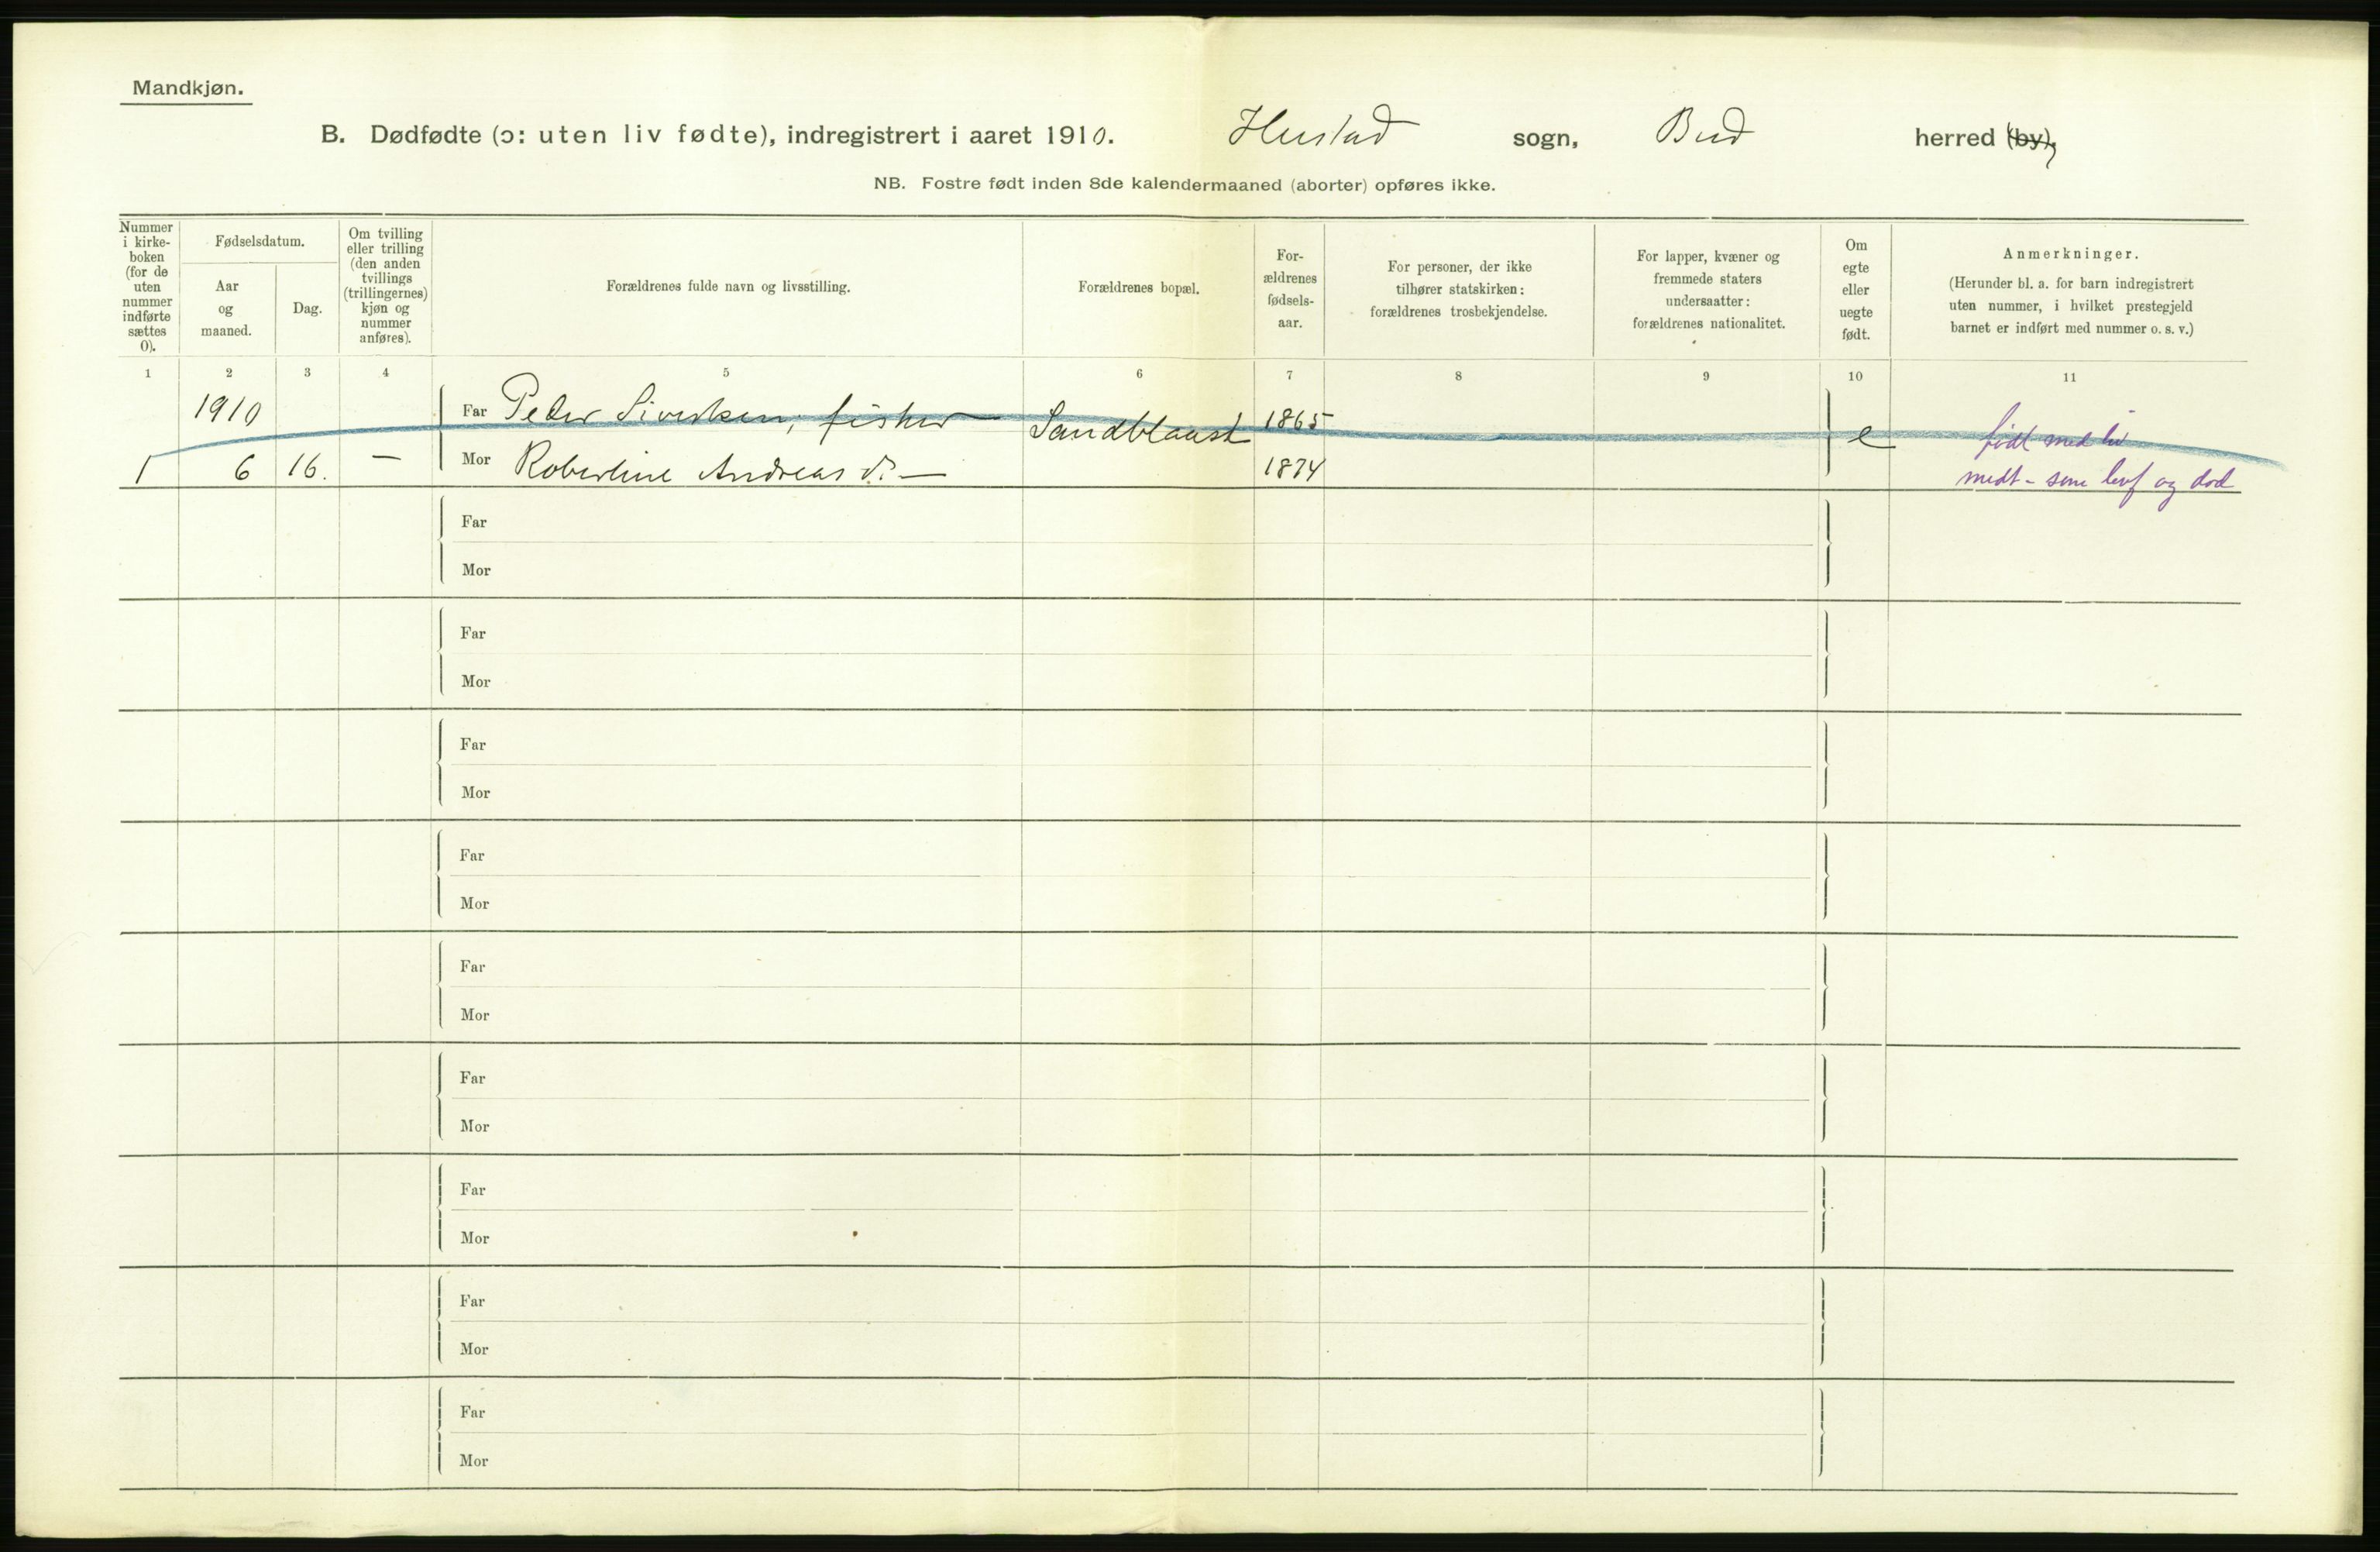 Mandkjøn.
B. Dødfødte (ɔ: uten liv fødte), indregistrert i aaret 1910. Hustad sogn, Bud herred (by),
NB. Fostre født inden 8de kalendermaaned (aborter) opføres ikke.
Nummer
i kirke-
boken
(for de
uten
nummer
indførte
sættes
0).
Fødselsdatum.
Aar
og
maaned.
Dag.
Om tvilling
eller trilling
(den anden
tvillings
(trillingernes)
kjøn og
nummer
anføres).
Forældrenes fulde navn og livsstilling.
Forældrenes bopæl.
For-
ældrenes
fødsels-
aar.
For personer, der ikke
tilhører statskirken:
forældrenes trosbekjendelse.
For lapper, kvæner og
fremmede staters
undersaatter:
forældrenes nationalitet.
Om
egte
eller
uegte
født.
Anmerkninger.
(Herunder bl. a. for barn indregistrert
uten nummer, i hvilket prestegjeld
barnet er indført med nummer o. s. v.)
1 2 3 4 5 6 7 8 9 10 11
1910 Far Peder Sivertsen, fisker Sandblaast 1865 e født med liv
1 6 16. — Mor Roberline Andreas d. — 1874 medt - som lev og død
Far
Mor
Far
Mor
Far
Mor
Far
Mor
Far
Mor
Far
Mor
Far
Mor
Far
Mor
Far
Mor